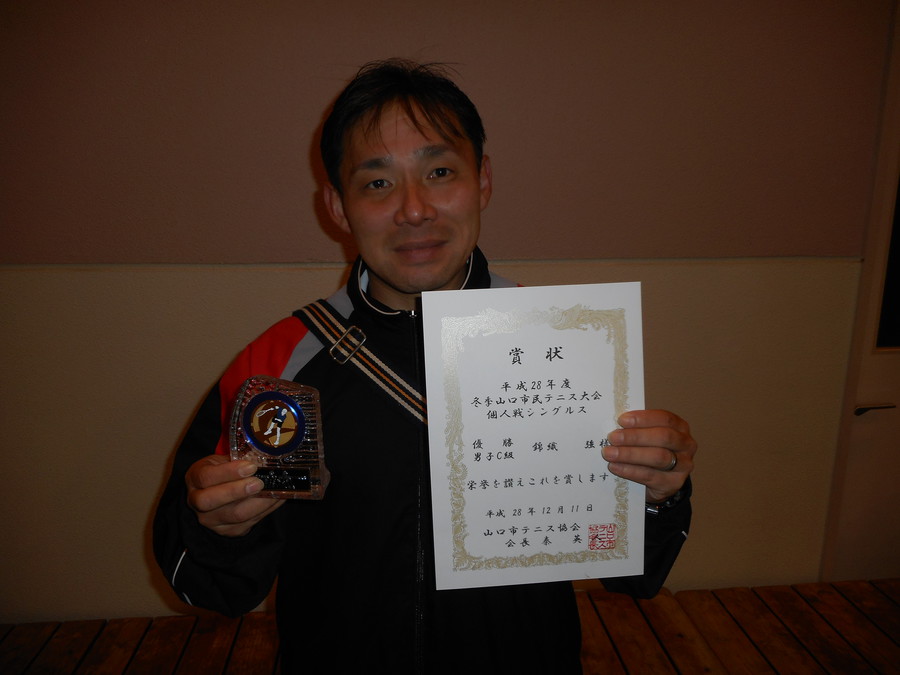 賞 状
平成 28 年 度
冬季山口市民テニス大会
個人戦シングルス
優 勝 錦織 強 様
男子C級
栄誉を讃えこれを賞します
平成 28 年 12 月 11 日
山口市テニス協会
会長 泰 英